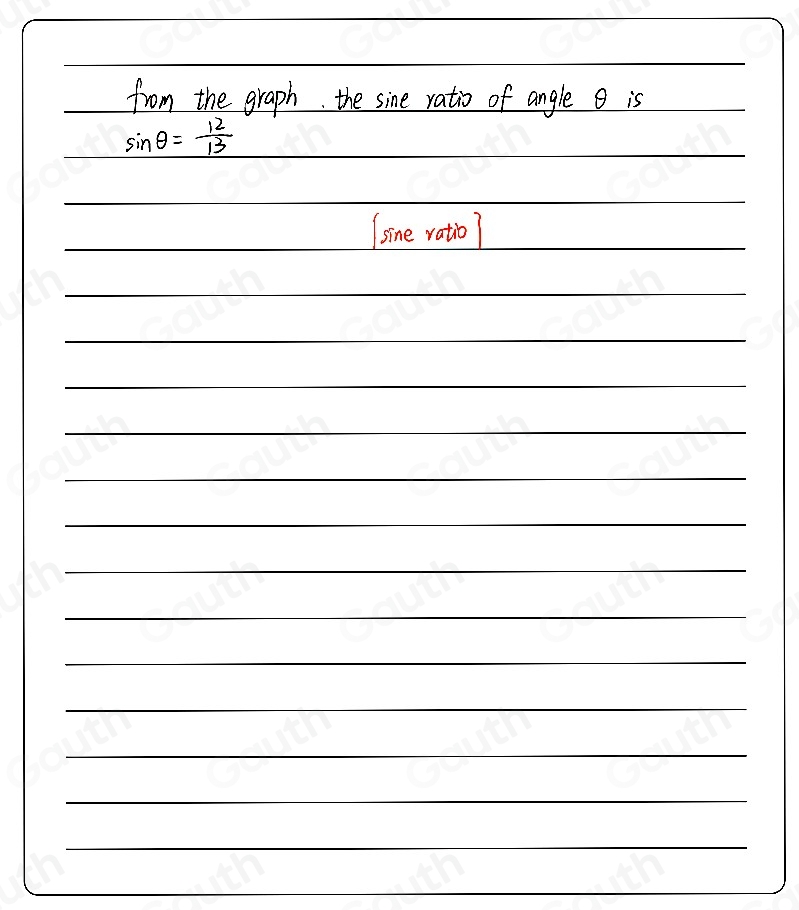 from the graph. the sine ratio of angle θ is
sin θ = 12/13
[sine ratio]